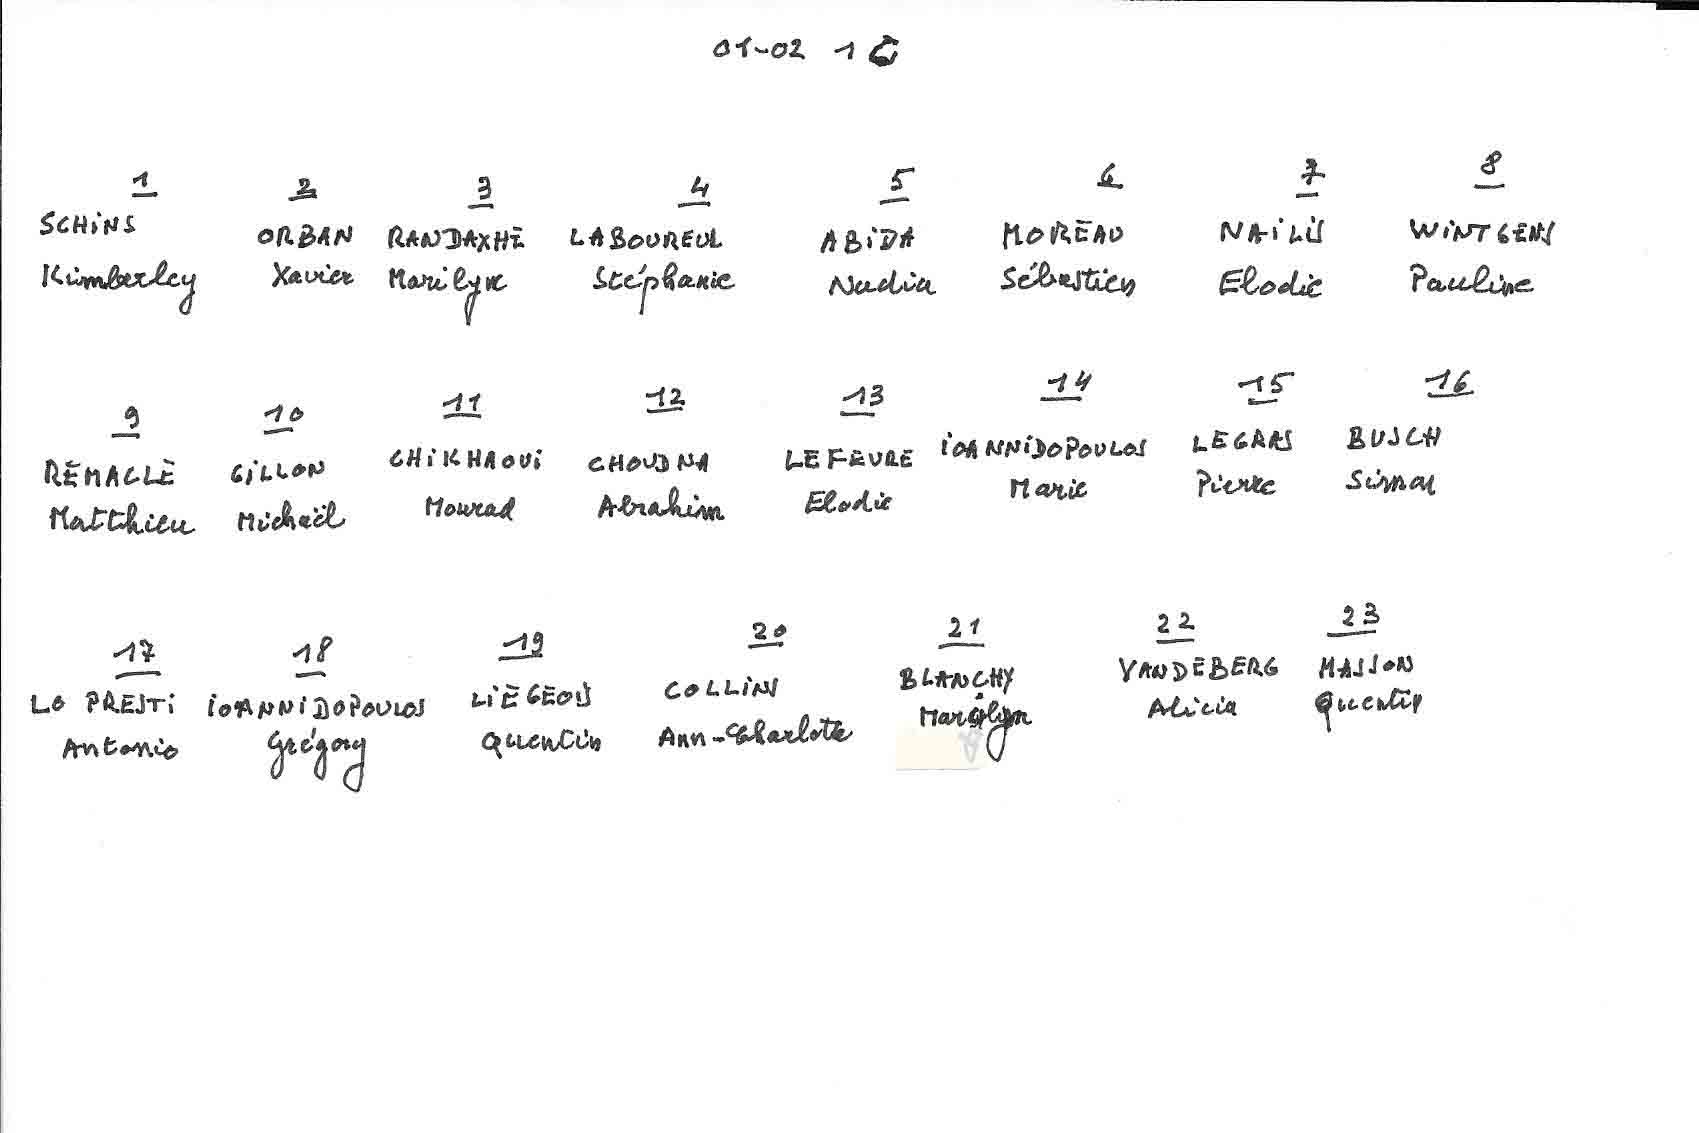 01-02 1C
1 2 3 4 5 6 7 8
SCHiNS ORBAN RANDAXHE LABOUREUL ABiDA MOREAU NAiLiS WiNTGENS
Kimberley Xavier Marilyne Stéphanie Nadia Sébastien Elodie Pauline
9 10 11 12 13 14 15 16
REMACLE GiLLON CHiKHAOUi CHOUDNA LEFEVRE iOANNiDOPOULOS LEGARS BUSCH
Matthieu Michaël Mourad Abrahim Elodie Marie Pierre Simon
17 18 19 20 21 22 23
LO PRESTi iOANNiDOPOULOS LiÈGEOiS COLLiNS BLANCHY VANDEBERG MASSON
Antonio Grégory Quentin Ann-Charlotte Marilyn Alicia Quentin